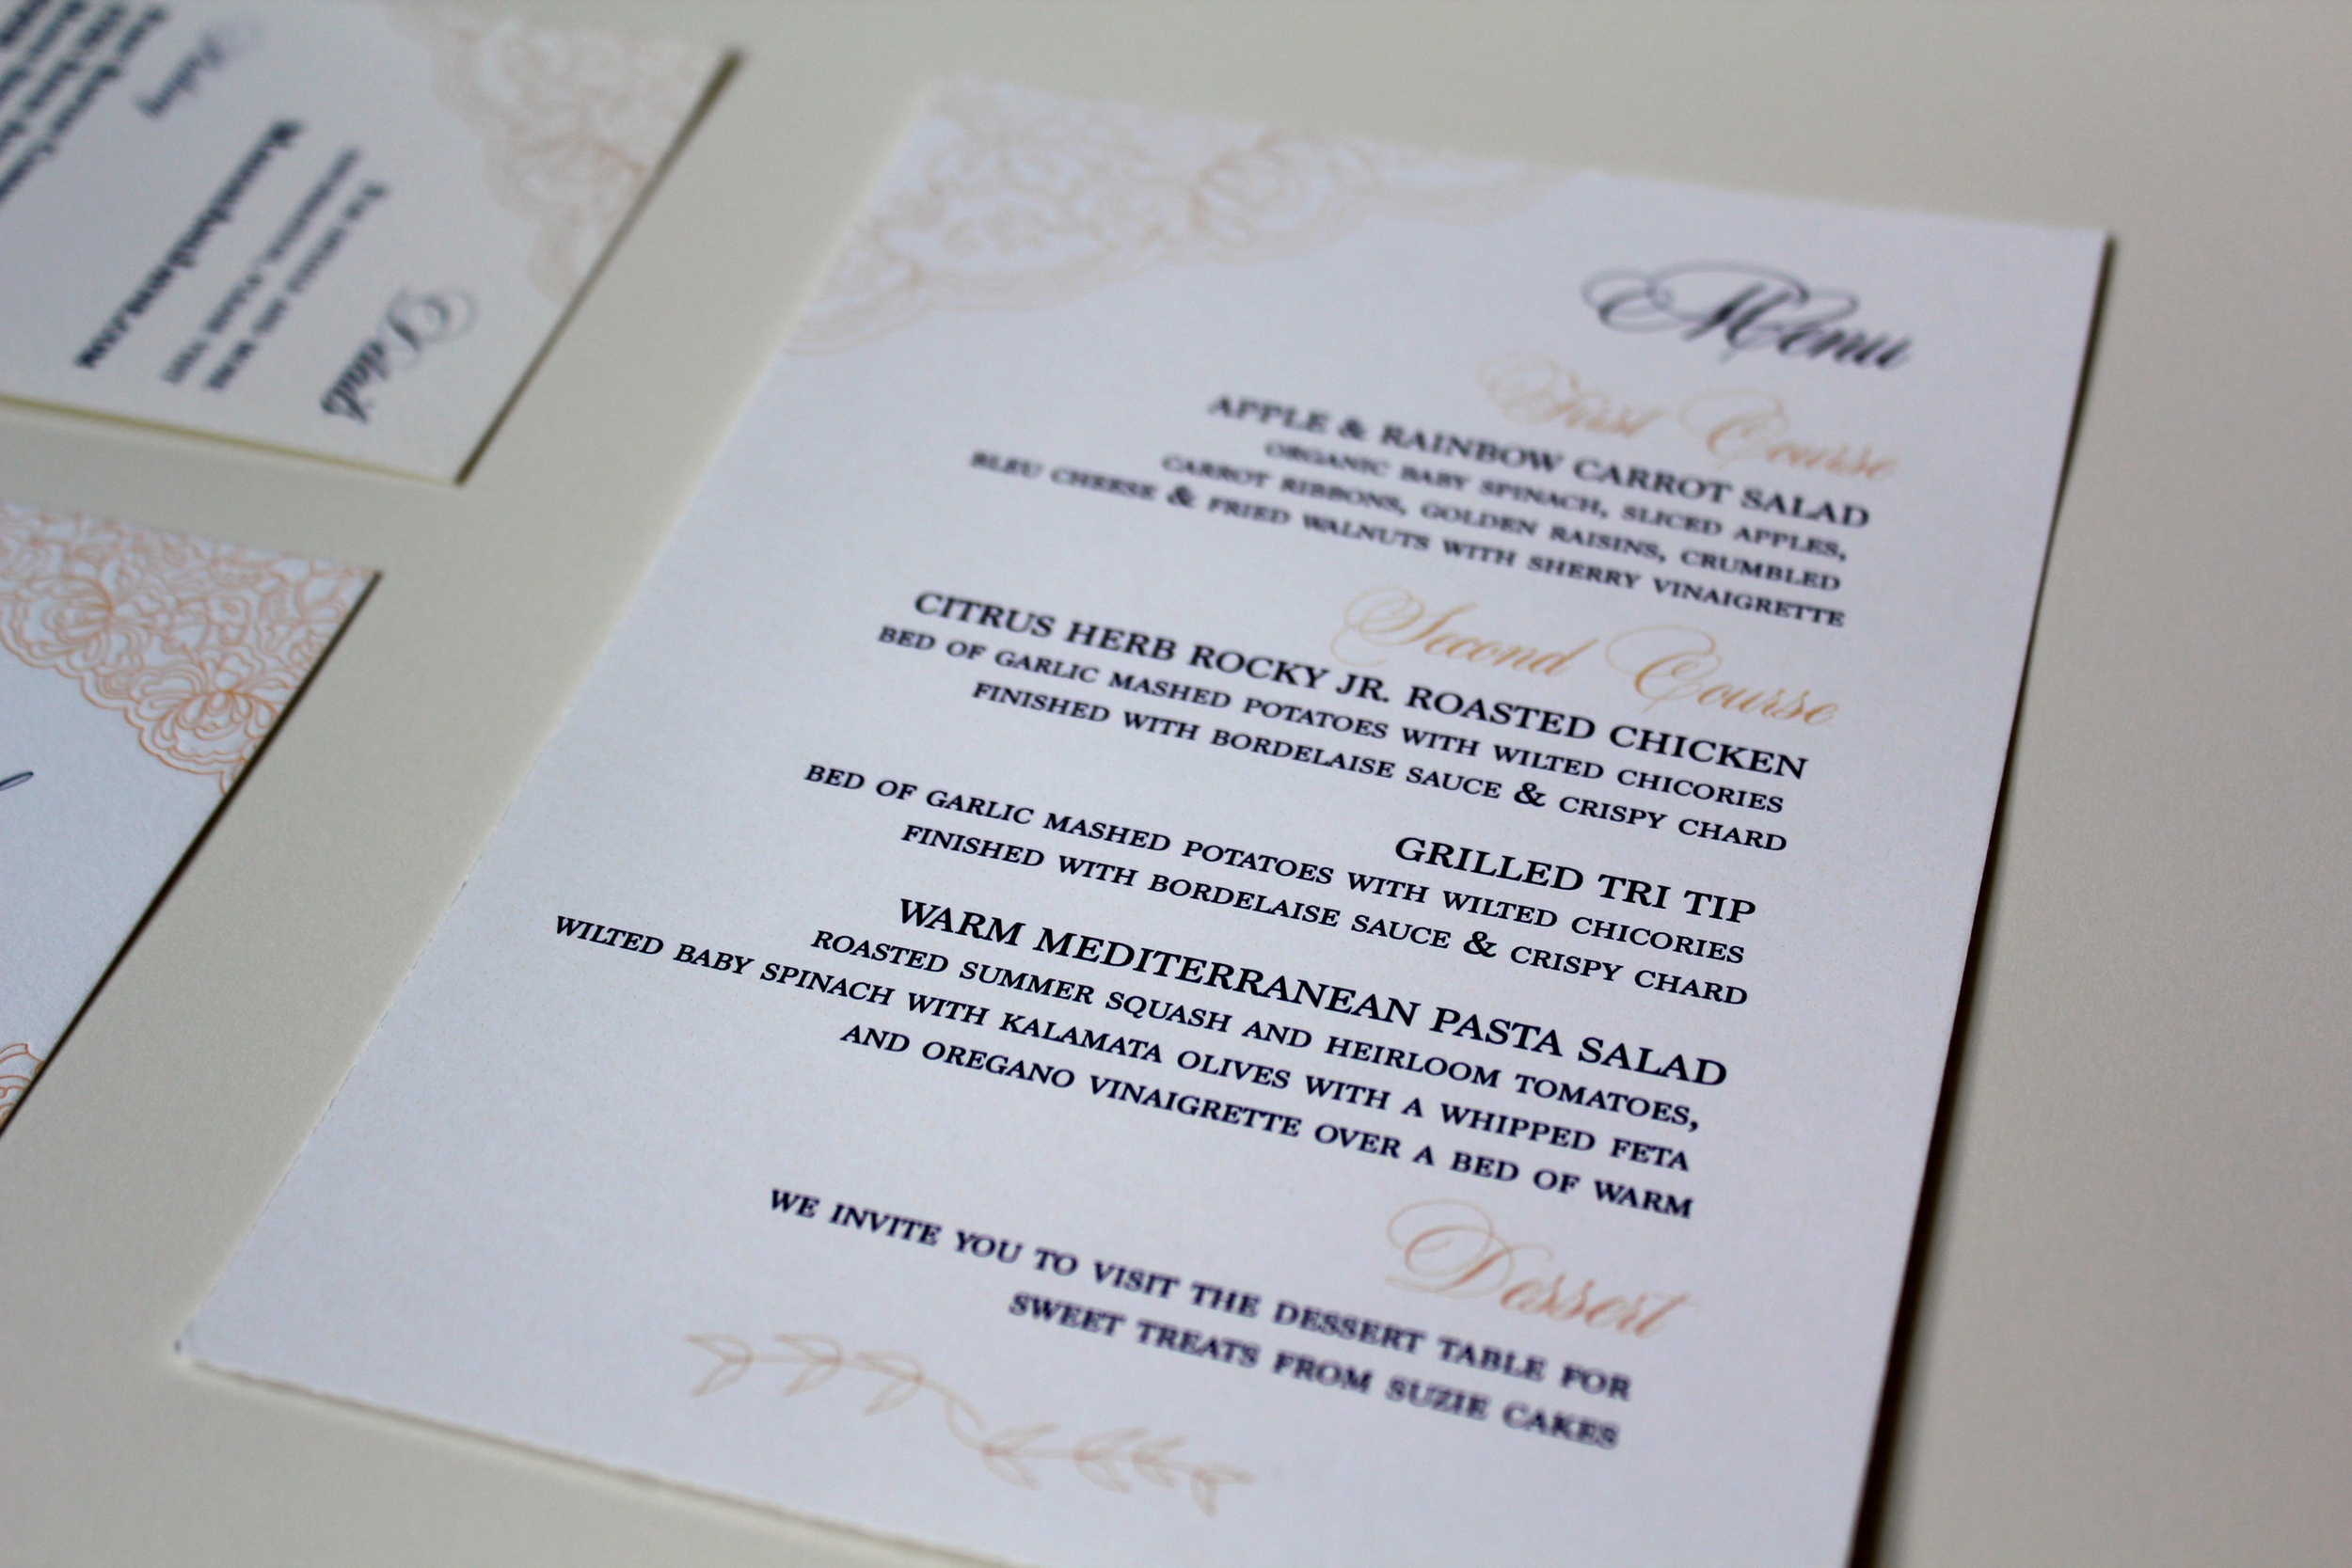 Menu
First Course
APPLE & RAINBOW CARROT SALAD
ORGANIC BABY SPINACH, SLICED APPLES,
CARROT RIBBONS, GOLDEN RAISINS, CRUMBLED
BLEU CHEESE & FRIED WALNUTS WITH SHERRY VINAIGRETTE
Second Course
CITRUS HERB ROCKY JR. ROASTED CHICKEN
BED OF GARLIC MASHED POTATOES WITH WILTED CHICORIES
FINISHED WITH BORDELAISE SAUCE & CRISPY CHARD
GRILLED TRI TIP
BED OF GARLIC MASHED POTATOES WITH WILTED CHICORIES
FINISHED WITH BORDELAISE SAUCE & CRISPY CHARD
WARM MEDITERRANEAN PASTA SALAD
ROASTED SUMMER SQUASH AND HEIRLOOM TOMATOES,
WILTED BABY SPINACH WITH KALAMATA OLIVES WITH A WHIPPED FETA
AND OREGANO VINAIGRETTE OVER A BED OF WARM
Dessert
WE INVITE YOU TO VISIT THE DESSERT TABLE FOR
SWEET TREATS FROM SUZIE CAKES
Details